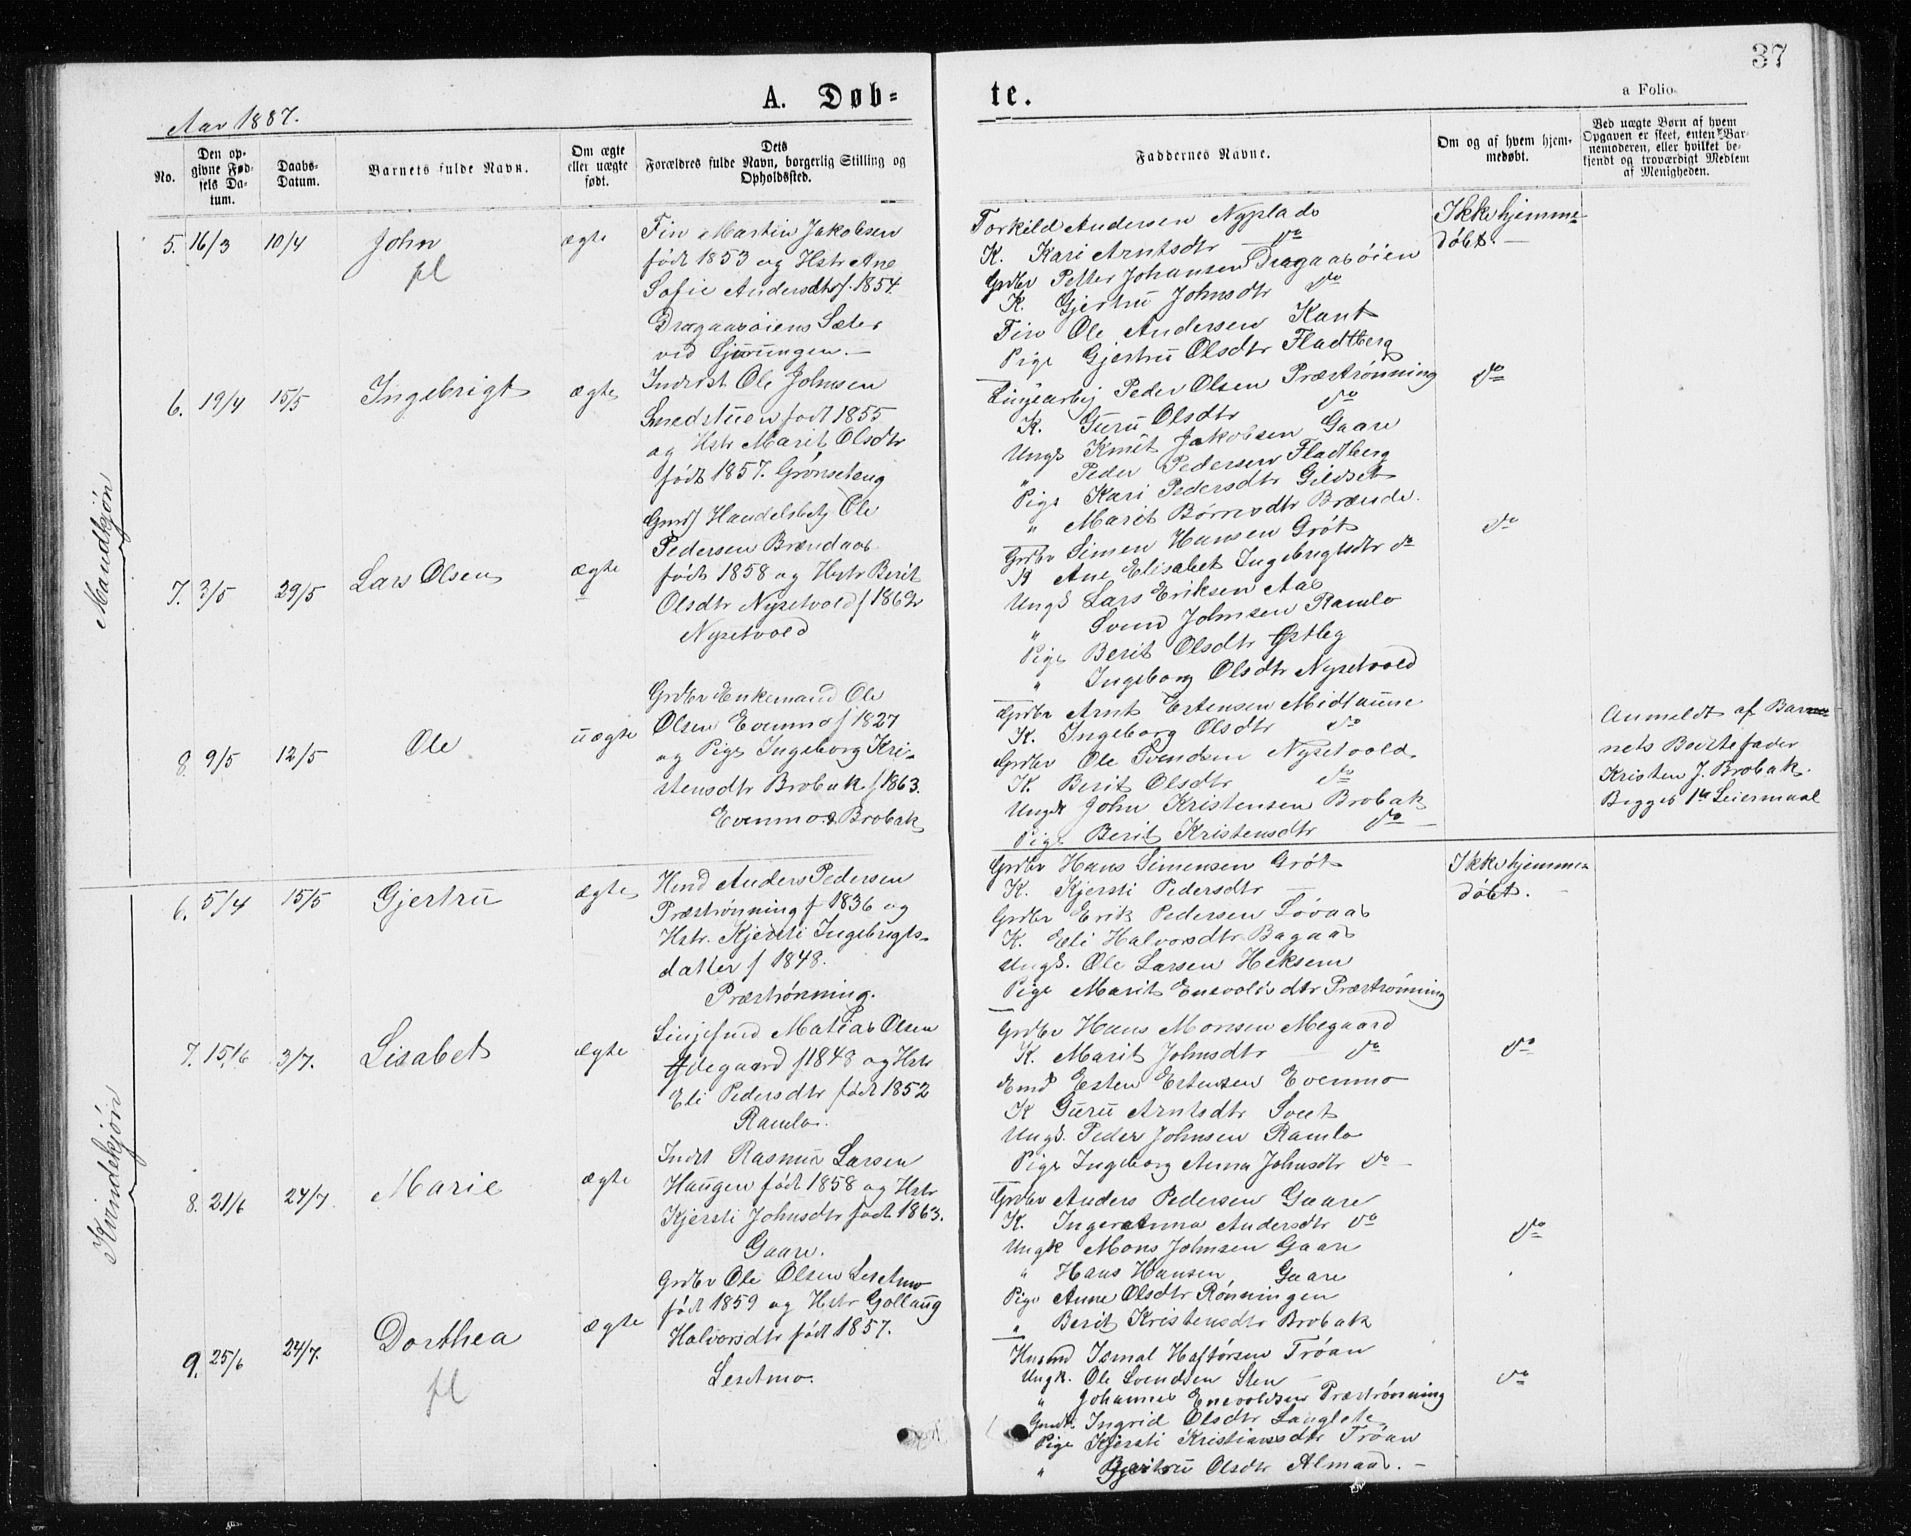 37
A. Døb-
te.
a Folio.
Aar 1887.
No.
Den op-
givne Fød-
sels Da-
tum.
Daabs-
Datum.
Barnets fulde Navn.
Om ægte
eller uægte
født.
Dets
Forældres fulde Navn, borgerlig Stilling og
Opholdssted.
Faddernes Navne.
Om og af hvem hjem-
medøbt.
Ved uægte Børn af hvem
Opgaven er skeet, enten Bar-
nemoderen, eller hvilket be-
kjendt og troværdigt Medlem
af Menigheden.
Mandkjøn
5. 16/3 10/4 John ægte
pl
Fin Martin Jakobsen
født 1853 og Hstr Ane
Sofie Andersdtr f. 1854
Dragaasøiens Sæter
vid
Torkild Andersen Nyplads
K. Kari Arntsdtr do
Grdbr Petter Johansen Dragaasøien
K. Gjertru Johnsdtr do
Fin Ole Andersen Kant
Pige Gjertru Olsdtr Fladtberg
Ikke hjemme-
døbt.
6. 19/4 15/5 Ingebrigt ægte
Indrst Ole Johnsen
Smedstuen født 1855
og Hstr Marit Olsdtr
født 1857. Grønseteng
Linjearbj Peder Olsen Præstrønning
K. Guru Olsdtr do
Ungk Knut Jakobsen Gaare
" Peder Pedersen Fladtberg
Pige Kari Pedersdtr Gildset
" Marit Børresdtr Brænde.
do
7. 3/5 29/5 Lars Olsen ægte
Gmd Handelsbetj Ole
Pedersen Brændaas
født 1858 og Hstr Berit
Olsdtr Nysetvold f 1862
Nysetvold
Grdbr Simen Hansen Grøt
K Ane Elisabet Ingebrigtsdtr do
Ungk Lars Eriksen Aas
" Svend Johnsen Ramlo
Pige Berit Olsdtr Østby
" Ingeborg Olsdtr Nysetvold
do
8. 9/5 12/5 Ole uægte
Grdbr Enkemand Ole
Olsen Evenmo f 1827
og Pige Ingeborg Kri-
stensdtr Brobak f 1863.
Evenmo & Brobak
Grdbr Arnt Estensen Midtaune
K. Ingeborg Olsdtr do
Grdbr Ole Svendsen Nysetvold
K. Berit Olsdtr do
Ungk John Kristensen Brobak
Pige Berit Kristensdtr do
Anmeldt af Bar-
nets Bedstefader
Kristen J. Brobak.
Begges 1ste Leiermaal
Kvindekjøn
6. 5/4 15/5 Gjertru ægte
Hmd Anders Pedersen
Præstrønning f 1836 og
Hstr. Kjersti Ingebrigts-
datter f 1848.
Præstrønning.
Grdbr Hans Simensen Grøt
K. Kjersti Pedersdtr —
Grdbr Erik Pedersen Løvaas
K. Eli Halvorsdtr Bagaas
Ungk. Ole Larsen Heksem
Pige Marit Enevoldsdtr Præstrønning
Ikke hjemme-
døbt.
7. 15/6 3/7. Lisabet ægte
Linjefmd Matias Olsen
Ødegaard f 1848 og Hstr
Eli Pedersdtr født 1852
Ramlo.
Grdbr Hans Monsen Megaard
K. Marit Johnsdtr — do
Emd Esten Estensen Evenmo
K Guru Arntsdtr Svet
Ungk. Peder Johnsen Ramlo
Pige Ingeborg Anna Johnsdtr do
do
8. 21/6 24/7 Marie ægte
Indrst Rasmus Larsen
Haugen født 1858 og Hstr
Kjersti Johnsdtr født 1863.
Gaare.
Grdbr Anders Pedersen Gaare
K. Ingeranna Andersdtr do
Ungk Mons Johnsen Gaare
" Hans Hansen Gaare
Pige Anne Olsdtr Rønningen
" Berit Kristensdtr Brobak
do
9. 25/6 24/7. Dorthea ægte
pl
Grdbr Ole Olsen Lesetmo
født 1859 og Hstr Gollaug
Halvorsdtr født 1857.
Lesetmo.
Husmd Ismal Haftorsen Trøan
Ungk. Ole Svendsen Sten
" Johannes Enevoldsen Præstrønning
Ingrid Olsdtr Langlete
Pige Kjersti Kristiansdtr Trøan
" Gjertru Olsdtr Almaas.
do